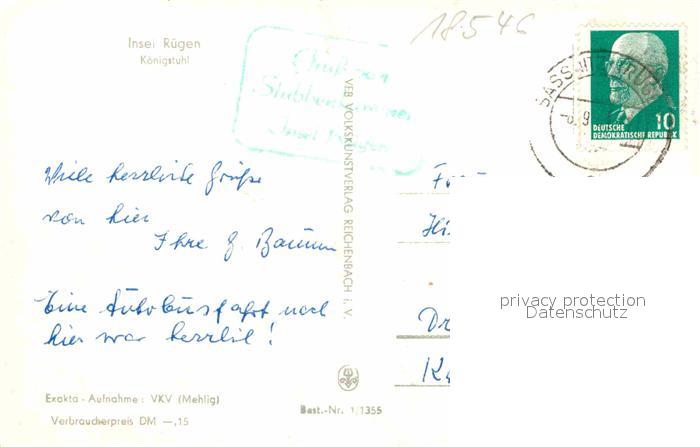 18546
Insel Rügen
Königstuhl
Gruß von
Stubbenkammer
Insel Rügen
SASSNITZ (RÜG
DEUTSCHE
DEMOKRATISCHE REPUBLIK
10
VEB VOLKSKUNSTVERLAG REICHENBACH i. V.
Viele herzliche Grüße
von hier
Ihre G. Baumm
Eine Autobusfahrt nach
hier war herrlich!
Hi
Dr
privacy protection
Datenschutz
Exakta - Aufnahme : VKV (Mehlig)
Verbraucherpreis DM —,15
Best.-Nr. 1/1355